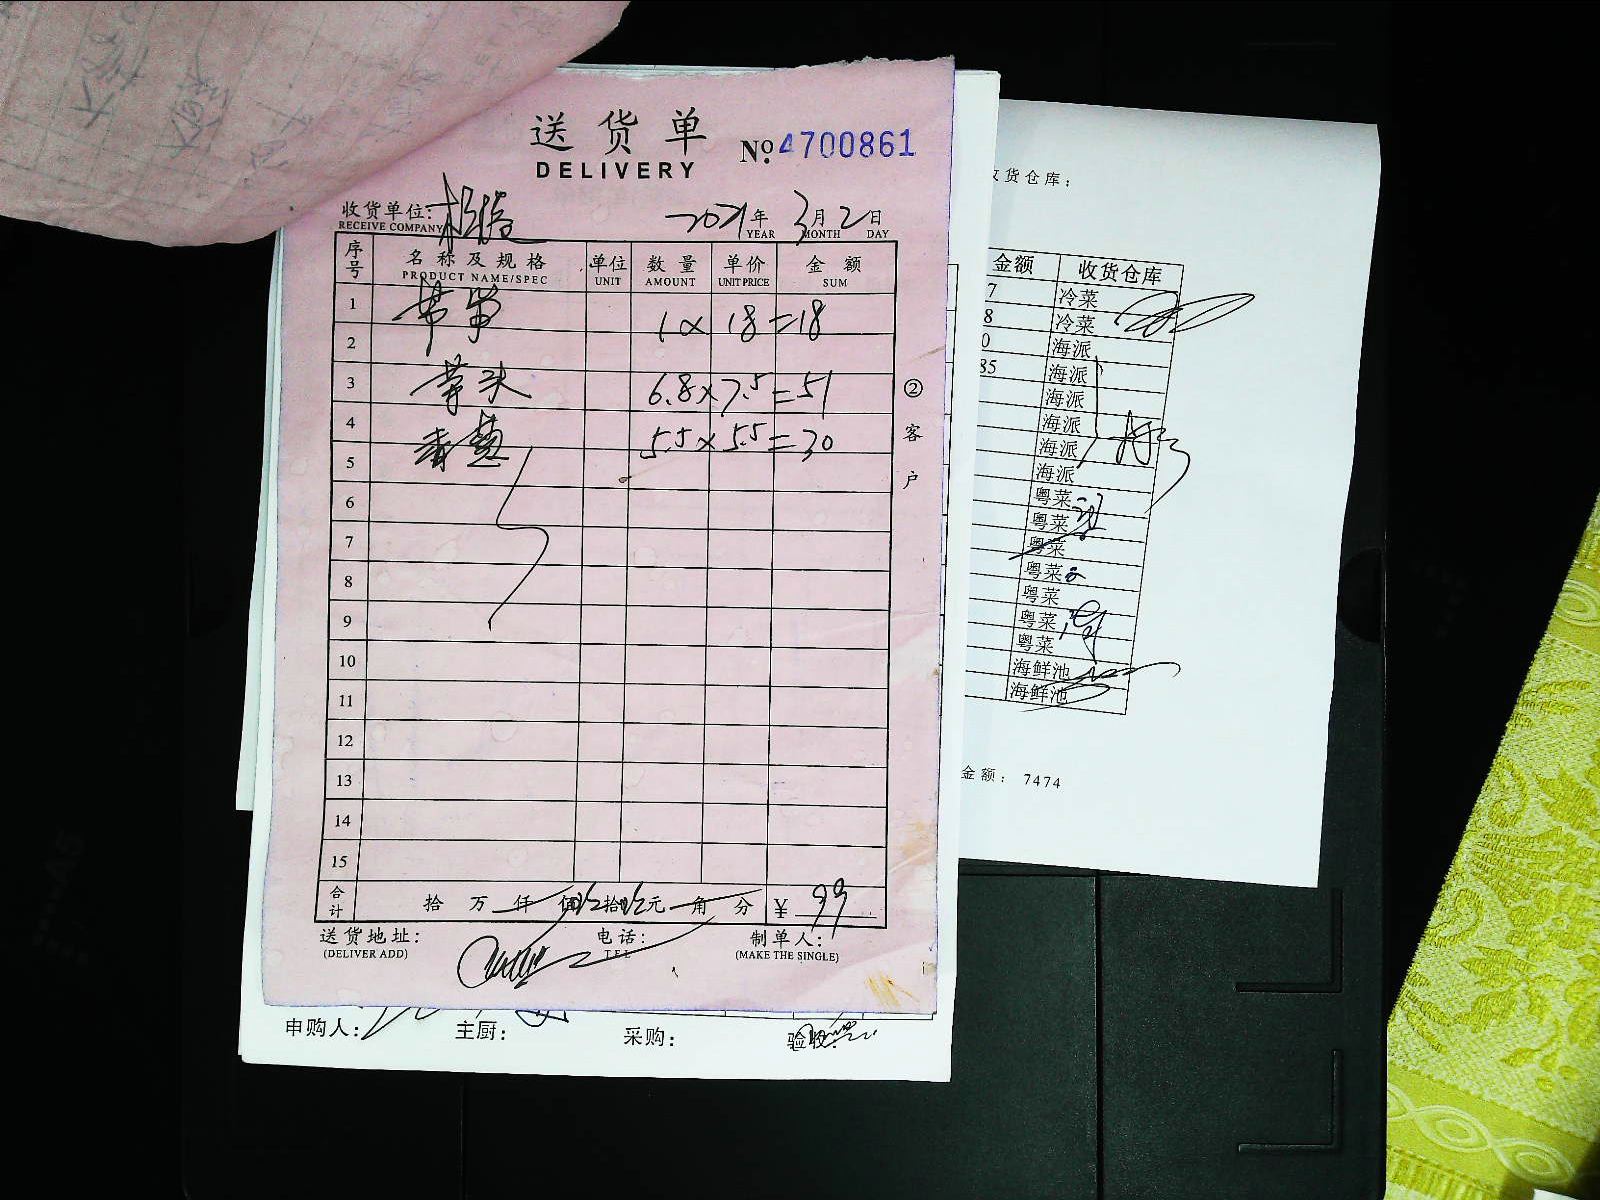 送货单
DELIVERY
№ 4700861
收货单位:
RECEIVE COMPANY
2021年 3月 2日
YEAR MONTH DAY
序号 名称及规格 单位 数量 单价 金额
PRODUCT NAME/SPEC UNIT AMOUNT UNIT PRICE SUM
1 1 × 18 = 18
2
3 芋头 6.8 × 7.5 = 51
4 5.5 × 5.5 = 30
5
6
7
8
9
10
11
12
13
14
15
合计 拾 万 仟 佰 玖拾玖元 角 分 ¥ 99
② 客户
送货地址: 电话: 制单人:
(DELIVER ADD) TEL (MAKE THE SINGLE)
申购人: 主厨: 采购: 验收:
货仓库:
金额 收货仓库
7 冷菜
8 冷菜
0 海派
85 海派
海派
海派
海派
海派
粤菜
粤菜
粤菜
粤菜
粤菜
粤菜
粤菜
海鲜池
海鲜池
金额: 7474